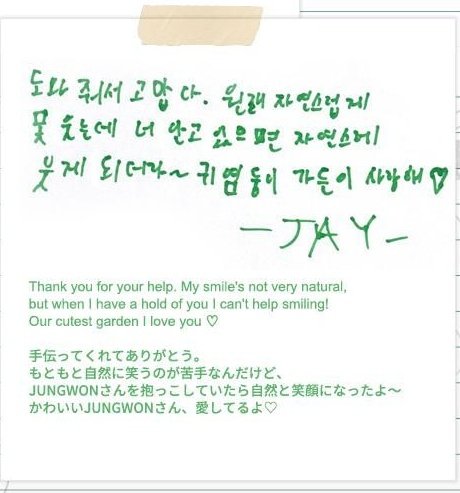 도와 줘서 고맙다. 원래 자연스럽게
못 웃는데 너 안고 있으면 자연스레
웃게 되더라~ 귀염둥이 가든이 사랑해♡
-JAY-
Thank you for your help. My smile's not very natural,
but when I have a hold of you I can't help smiling!
Our cutest garden I love you ♡
手伝ってくれてありがとう。
もともと自然に笑うのが苦手なんだけど、
JUNGWONさんを抱っこしていたら自然と笑顔になったよ〜
かわいいJUNGWONさん、愛してるよ♡